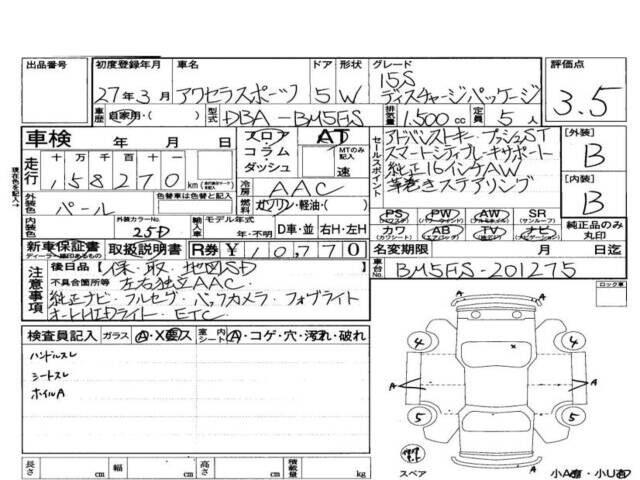 出品番号 初度登録年月 車名 ドア 形状 グレード 評価点
27年3月 アクセラスポーツ 5 W 15S
ディスチャージパッケージ
3.5
車歴 自家用・( ) 型式 DBA-BM5FS 排気量 1,500cc 定員 5人
車検 年 月 日
フロア AT
コラム
ダッシュ 速
MTのみ記入
セールスポイント
アドバンストキー プッシュST
スマートシティブレーキサポート
純正16インチAW
革巻きステアリング
[外装]
B
[内装]
B
走行 十 万 千 百 十 一
158270 km
冷房 AAC
燃料 ガソリン・軽油・( )
外装色 パール 色替車は色替と記入
内装色 外装カラーNo. 25D
輸入車 モデル年式 年・不明 D車・並 右H・左H
PS PW AW SR
(パワステ) (パワーウィンド) (アルミホイル) (サンルーフ)
カワ AB TV ナビ
(エアバッグ) (ナビゲーション)
純正品のみ丸印
新車保証書 取扱説明書 R券 ¥10,770
ディーラー印のあるもの
名変期限 月 日迄
車台No. BM5FS-201275
現在色を記入→
注意事項
後日品 (保・取・地図SD )
不具合箇所等 左右独立AAC
純正ナビ・フルセグ・バックカメラ・フォグライト
オートHIDライト・ETC
ロック車
検査員記入 ガラス A・X・要ス 室内シート A・コゲ・穴・汚れ・破れ
ハンドルスレ
シートスレ
ホイルA
A
4 4
x
A A
5 5
スペア
小A有・小U有
長さ cm 幅 cm 高さ cm 積載量 kg